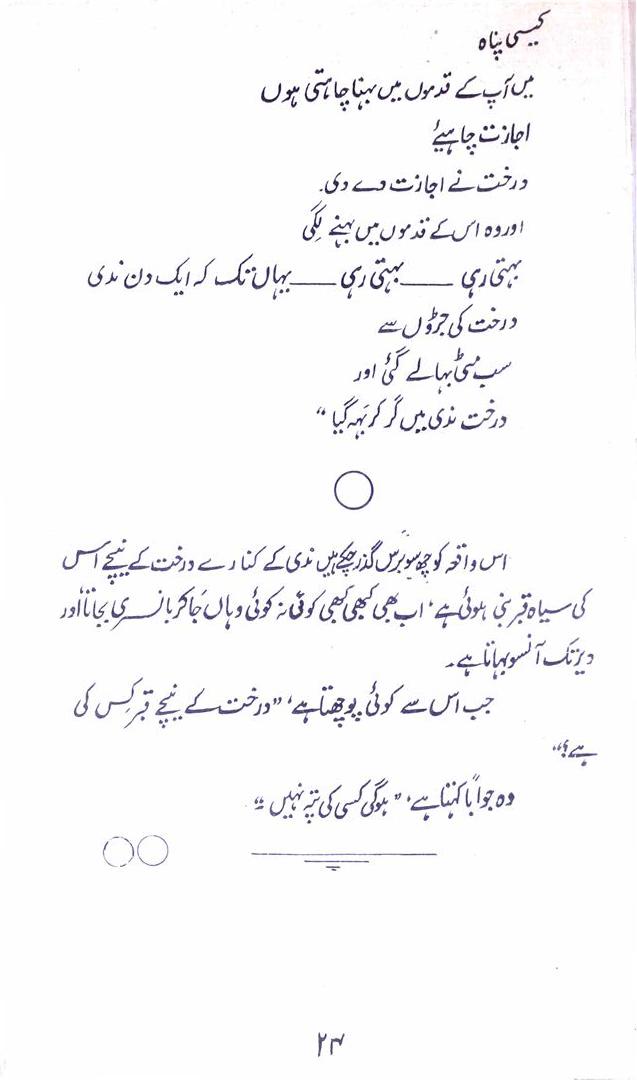 کیسی پناہ
میں آپ کے قدموں میں بہنا چاہتی ہوں
اجازت چاہیئے
درخت نے اجازت دے دی۔
اور وہ اس کے قدموں میں بہنے لگی
بہتی رہی ــــــ بہتی رہی ــــــ یہاں تک کہ ایک دن ندی
درخت کی جڑوں سے
سب مٹی بہا لے گئی اور
درخت ندی میں گر کر بَہہ گیا “
اس واقعہ کو چھ سو برس گذر چکے ہیں ندی کے کنارے درخت کے نیچے اس
کی سیاہ قبر بنی ہوئی ہے‘ اب بھی کبھی کبھی کوئی نہ کوئی وہاں جَا کر بانسری بجاتا اور
دیر تک آنسو بہاتا ہے۔
جب اس سے کوئی پوچھتا ہے‘ ”درخت کے نیچے قبر کِس کی
ہے؟“
وہ جواباً کہتا ہے‘ ” ہوگی کسی کی پتہ نہیں ۔“
۲۴